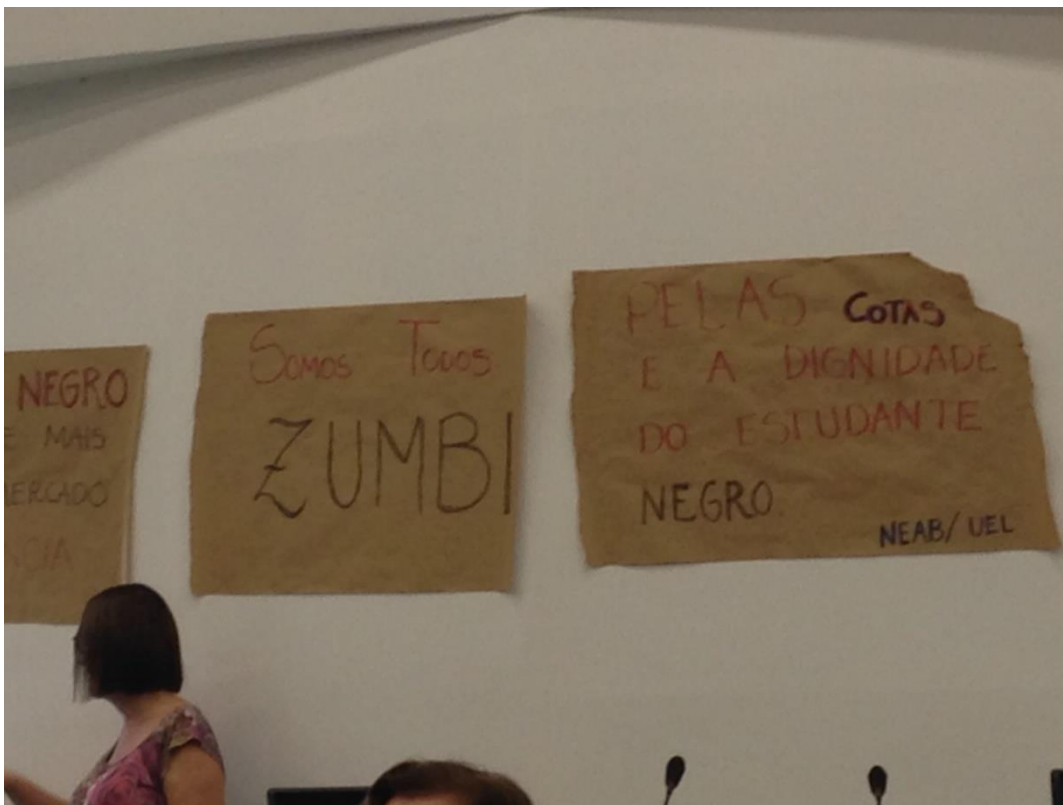 NEGRO
E MAIS
ERCADO
CIA
Somos Todos
ZUMBI
PELAS COTAS
E A DIGNIDADE
DO ESTUDANTE
NEGRO
NEAB/ UEL